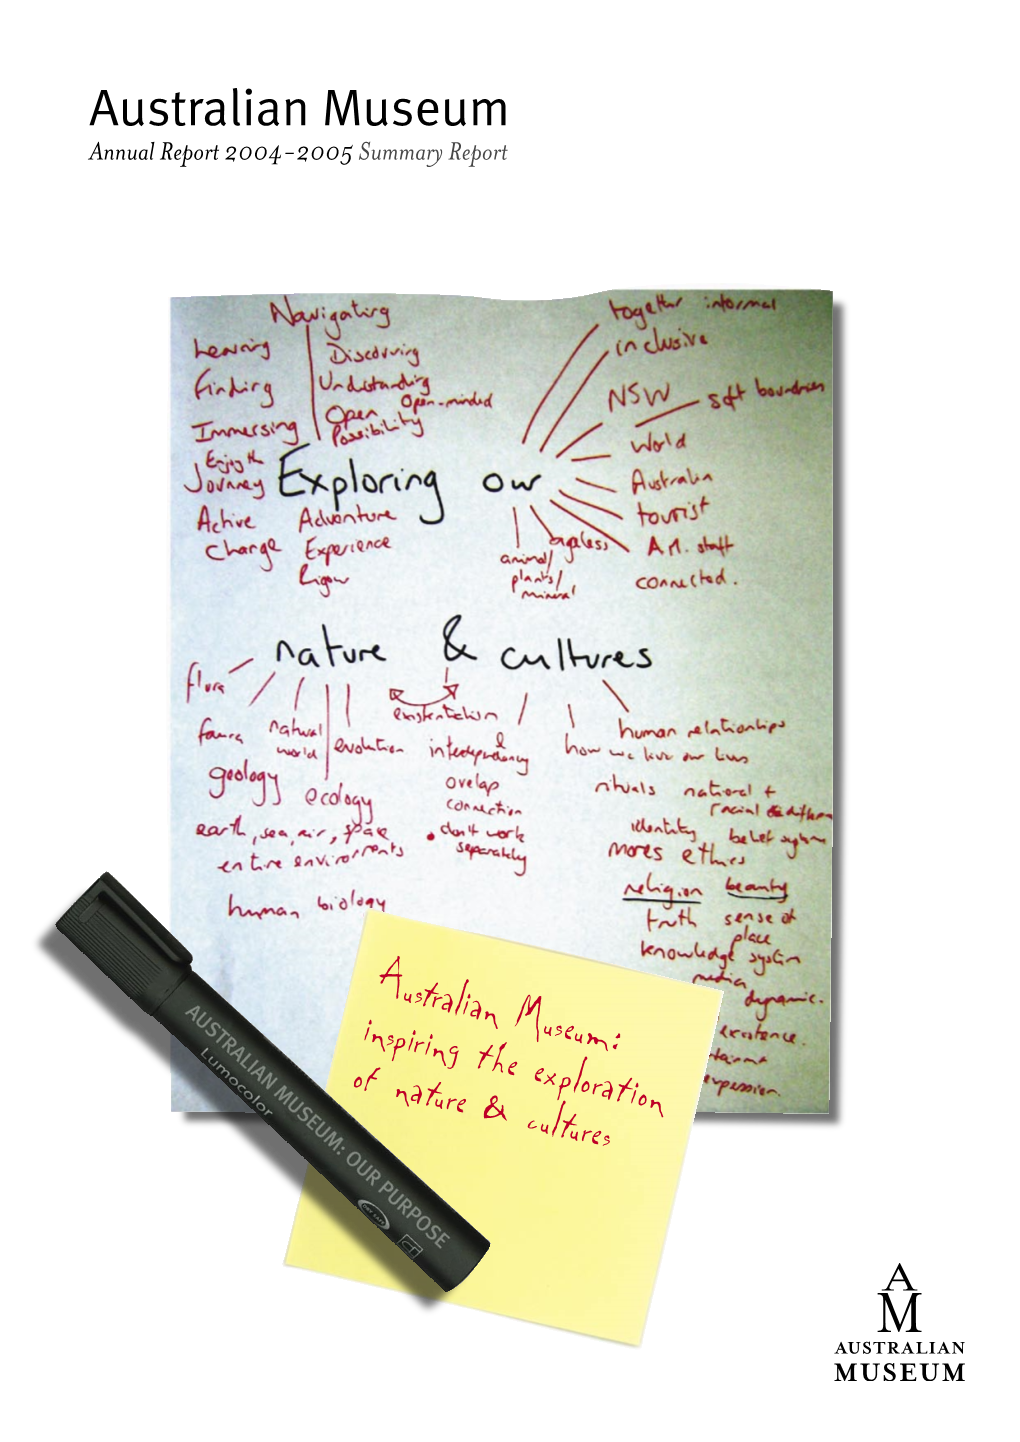 Australian Museum
Annual Report 2004–2005 Summary Report
Navigating
Learning
Discovering
Finding
Understanding
Open-minded
Immersing
Open
Possibility
Enjoy th
Journey
Exploring our
Active
Adventure
Change
Experience
Rigour
together informal
inclusive
NSW
soft boundries
World
Australia
tourist
A.M. staff
connected.
ageless
animal/
plants/
mineral
nature & cultures
flora
fauna
natural
world
evolution
geology
ecology
earth, sea, air, space
entire environments
human biology
existentialism
&
interdependency
overlap
connection
• don't work
separately
human relationships
how we live our lives
rituals national +
racial differen
identity belief system
mores ethics
religion beauty
truth sense of
place
knowledge system
media
dynamic.
existence.
expression.
Australian Museum:
inspiring the exploration
of nature & cultures
AUSTRALIAN MUSEUM: OUR PURPOSE
Lumocolor
AM
AUSTRALIAN
MUSEUM